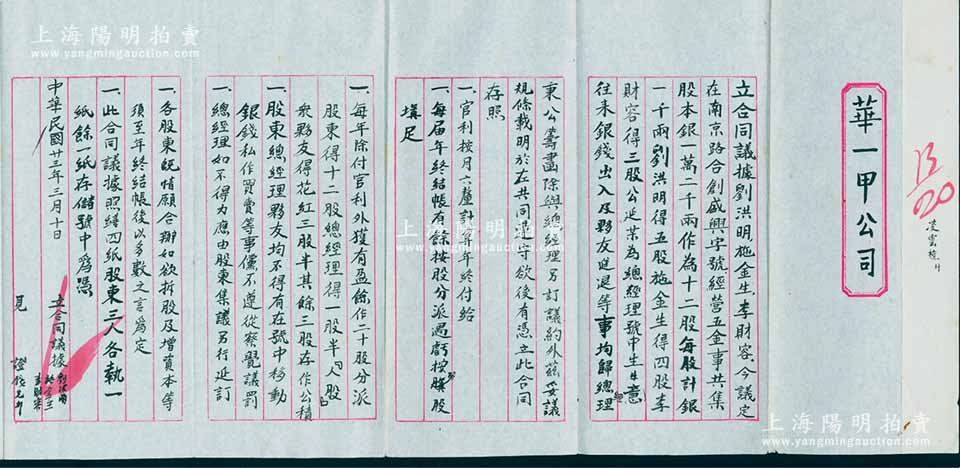 華一甲公司
立合同議據劉洪明施金生李財容今議定
在南京路合創盛興字號經營五金事共集
股本銀一萬二千兩作為十二股每股計銀
一千兩劉洪明得五股施金生得四股李
財容得三股公延某為總經理號中生意
往來銀錢出入及夥友進退等事均歸總理
秉公籌畫除與總經理另訂議約外茲妥議
規條載明於左共同遵守欲後有憑立此合同
存照
一、官利按月六釐計算年終付給
一、每屆年終結帳有餘按股分派遇虧按股
填足
一、每年除付官利外獲有盈餘作二十股分派
股東得十二股總經理得一股半
衆夥友得花紅三股半其餘三股存作公積
一、股東總經理夥友均不得有在號中移動
銀錢私作買賣等事儻不遵從察覺議罰
一、總經理如不得力應由股東集議另行延訂
一、各股東既情願合辦如欲拆股及增資本等
須至年終結帳後以多數之言為定
一、此合同議據照繕四紙股東三人各執一
紙餘一紙存儲號中為憑
中華民國廿三年三月十日
立合同議據
見
上海陽明拍賣
www.yangmingauction.com
上海陽明拍賣
www.yangmingauction.com
上海陽明拍賣
www.yangmingauction.com